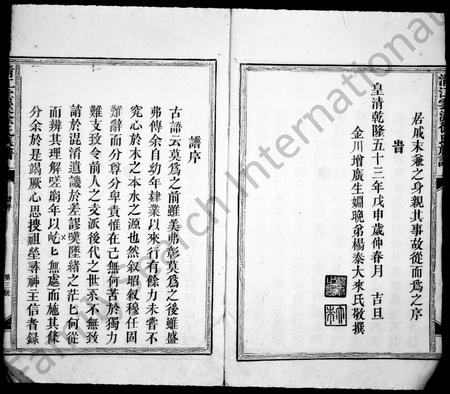 居戚末兼之身親其事故從而爲之序
旹
皇清乾隆五十三年戊申歲仲春月　吉旦
金川增廣生姻晚弟楊秦大來氏敬撰
譜序
古語云莫爲之前雖美弗彰莫爲之後雖盛
弗傳余自幼年肄業以來行有餘力未嘗不
究心於木之本水之源也然叙昭叙穆任固
難辭而分尊分卑責惟在己無何苦於獨力
難支致令前人之支派後代之世系不無致
誚於混淆遺譏於差謬嘆歷緒之茫匕何從
而辨其理解嗟窮年以矻匕無處而施其條
分余於是竭厥心思搜祖塋尋神主信者錄
Family Search International